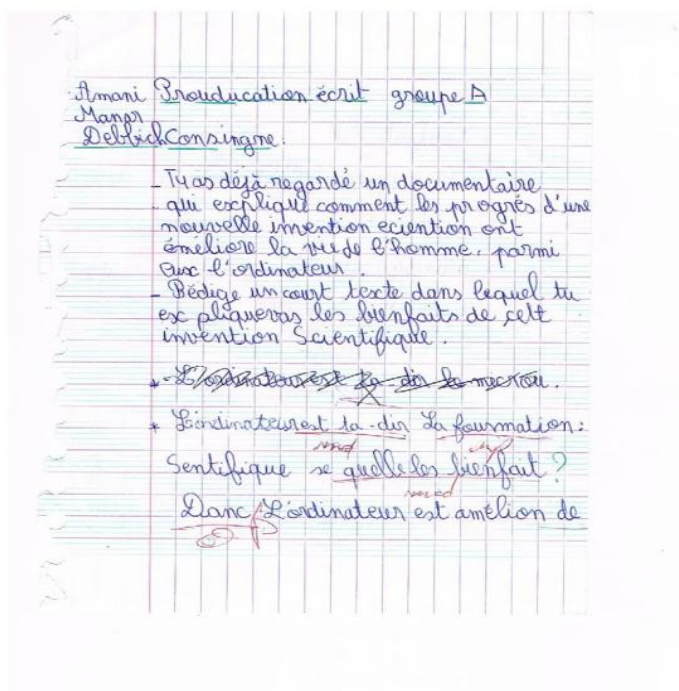 Amani Prouducation écrit groupe A
Manar
Debbich Consingne.
- Tu as déjà regardé un documentaire
qui esplique comment les progrès d'une
nouvelle invention eciention ont
éméliore la vie de l'homme, parmi
eux l'ordinateur.
- Rédige un court texte dans lequel tu
expliqueras les bienfaits de cett
invention Scientifique.
* L'ordinateur est ta-dir La foursmation:
Sentifique se quelle les bienfait?
Danc L'ordinateur est amélion de